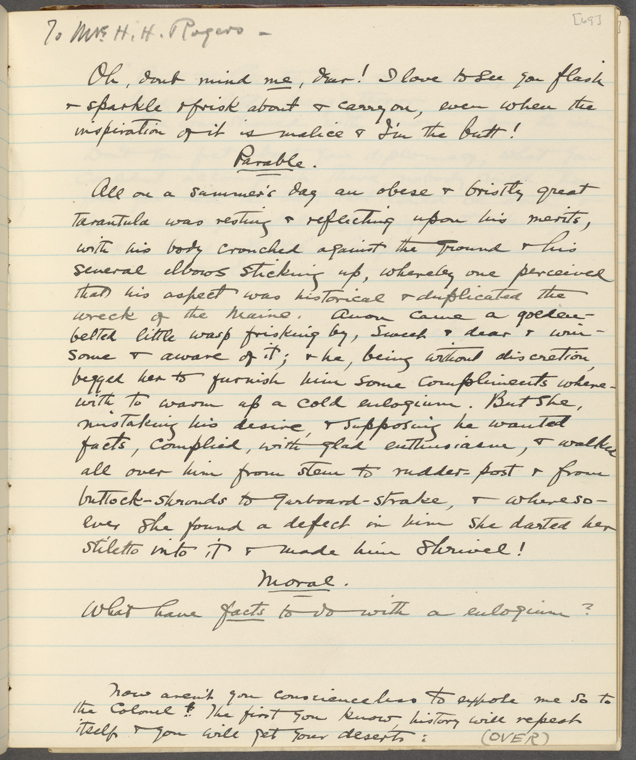 [69]
To Mrs. H. H. Rogers —
Oh, dont mind me, dear! I love to see you flash
& sparkle & frisk about & carry on, even when the
inspiration of it is malice & I'm the butt!
Parable.
All on a summer's day an obese & bristly great
tarantula was resting & reflecting upon his merits,
with his body crouched against the ground & his
several elbows sticking up, whereby one perceived
that his aspect was historical & duplicated the
wreck of the Maine. Anon came a golden-
belted little wasp frisking by, sweet & dear & win-
some & aware of it; & he, being without discretion,
begged her to furnish him some compliments where-
with to warm up a cold eulogium. But she,
mistaking his desire, & supposing he wanted
facts, complied, with glad enthusiasm, & walked
all over him from stem to rudder-post & from
buttock-shrouds to garboard-strake, & whereso-
ever she found a defect in him she darted her
stiletto into it & made him shrivel!
Moral.
What have facts to do with a eulogium?
Now aren't you conscienceless to expose me so to
the Colonel? The first you know, history will repeat
itself & you will get your deserts:
(OVER)